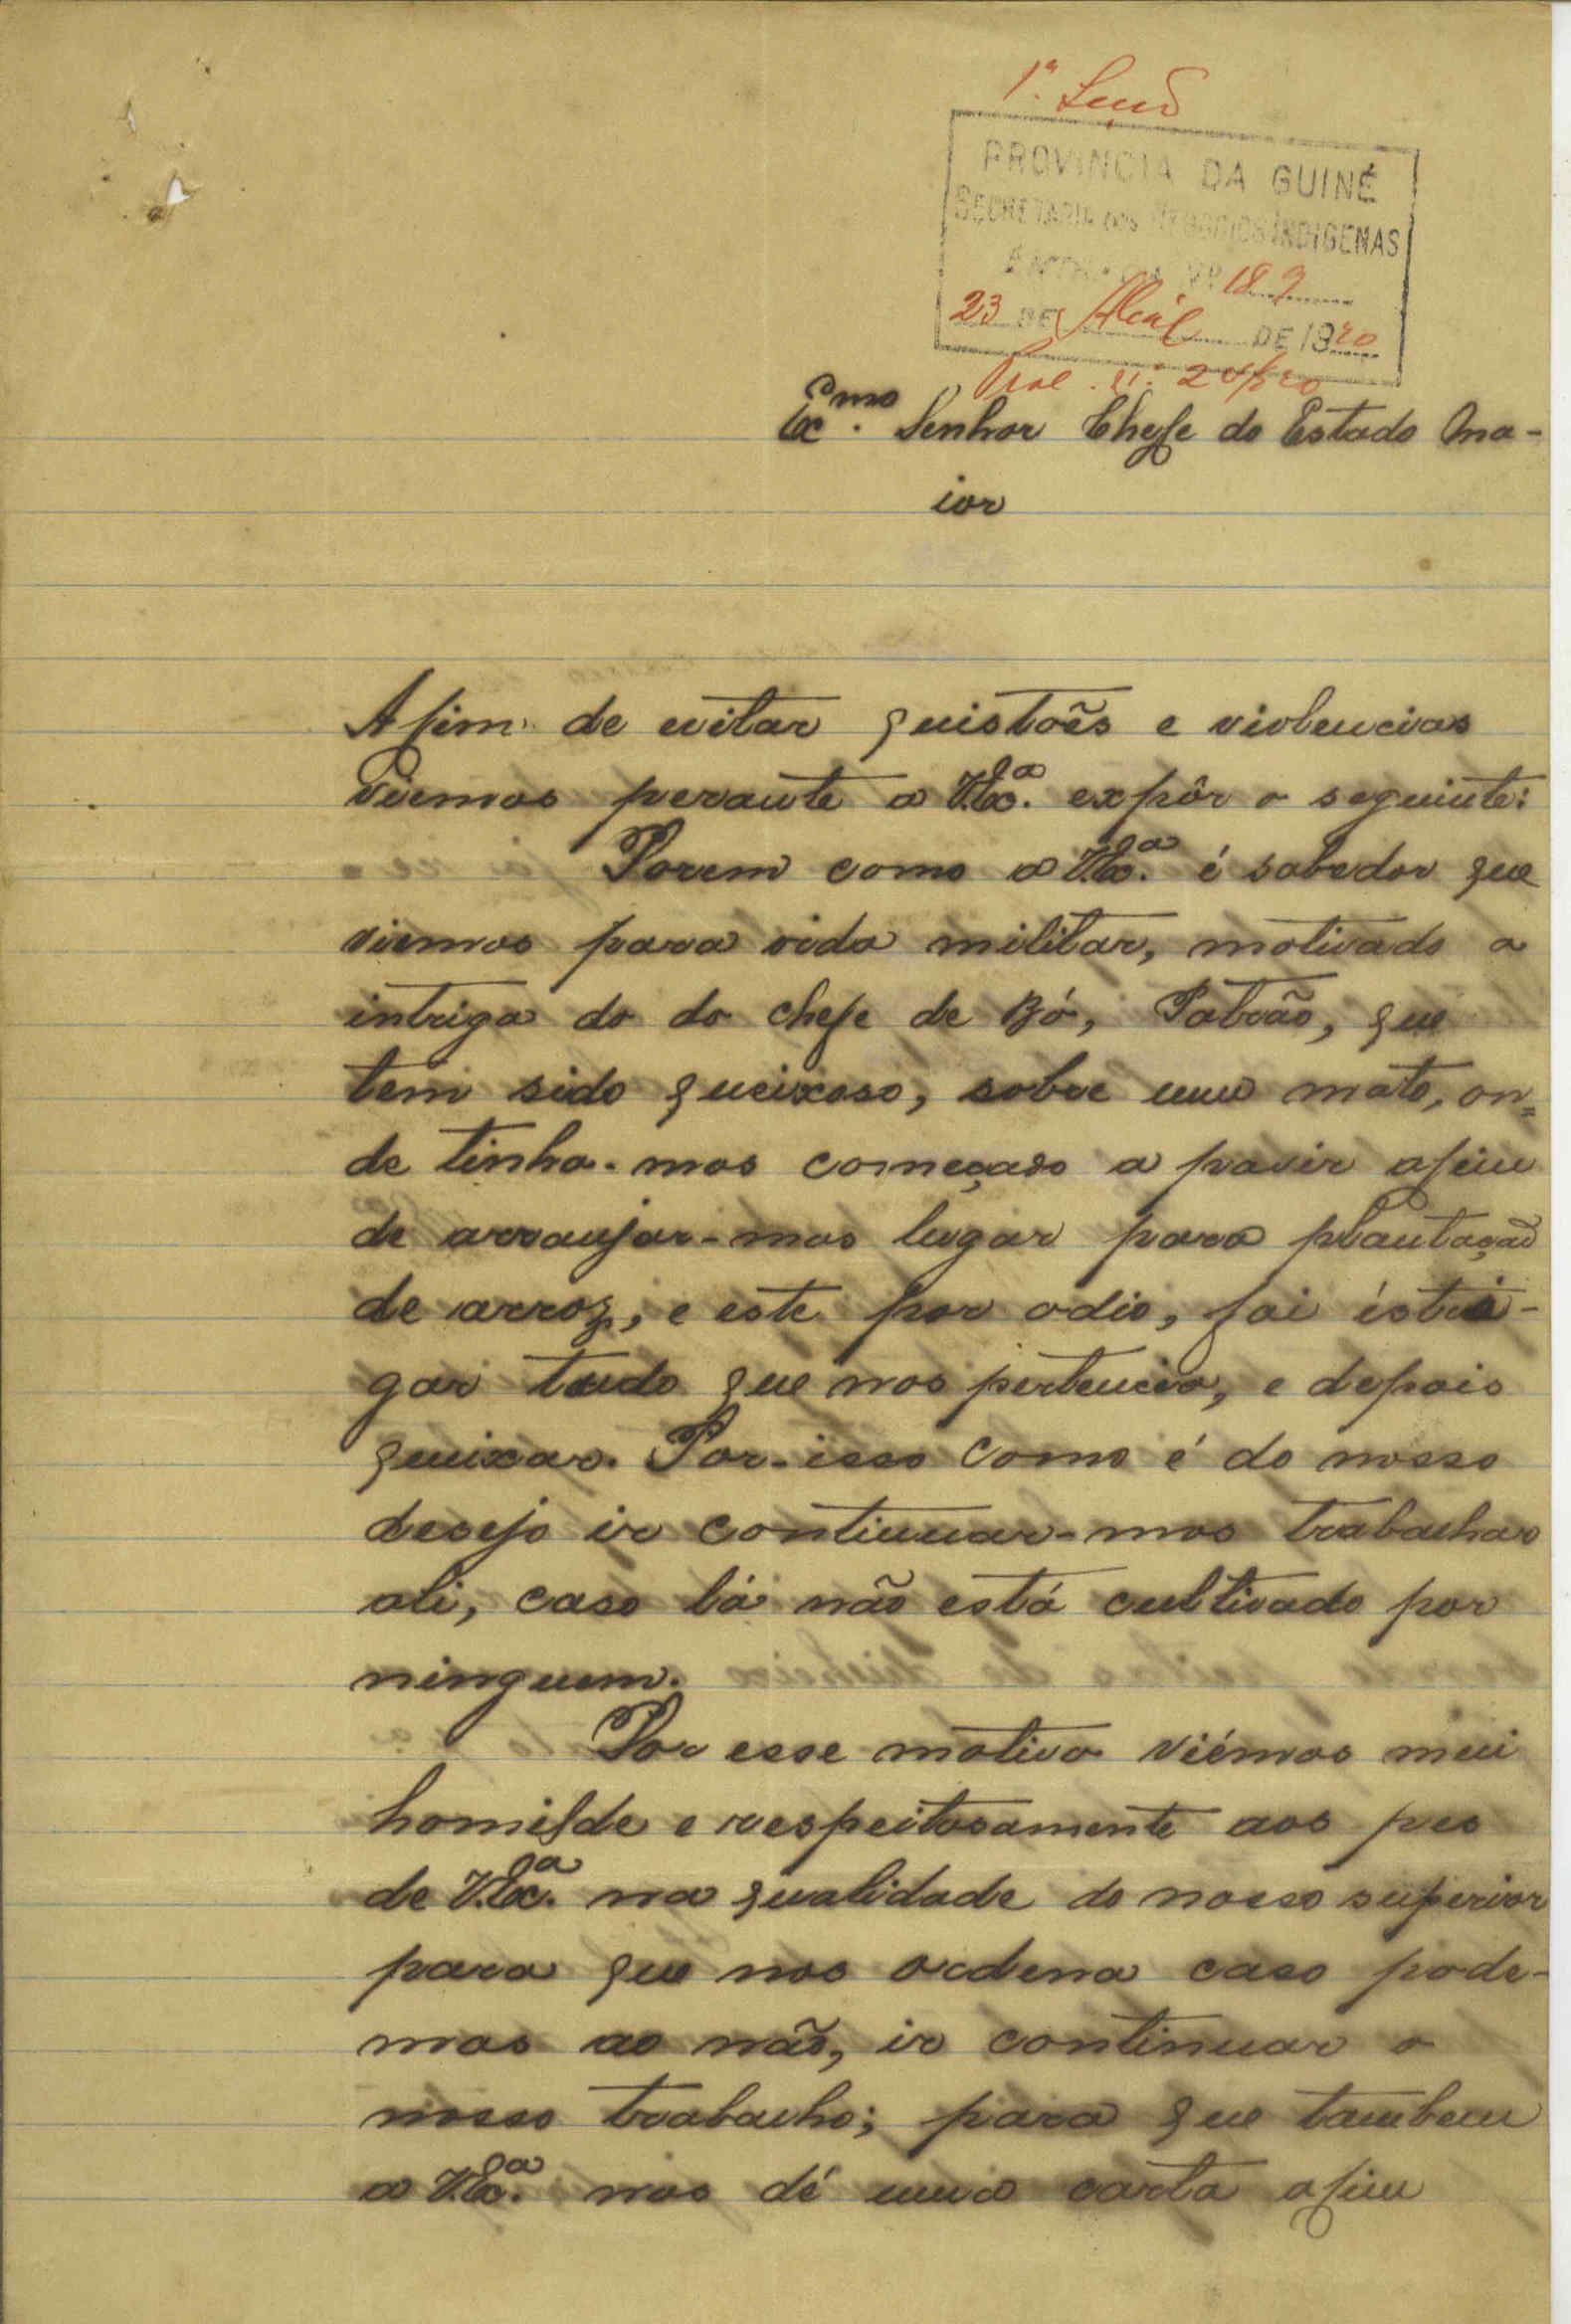 1ª Secção
PROVINCIA DA GUINÉ
SECRETARIA DOS NEGOCIOS INDIGENAS
ENTRADA Nº 189
23 DE Abril DE 1920
Exmo. Senhor Chefe do Estado Ma-
ior
Afim de evitar quistoẽs e violencias
viemos perante a V.Exª. expôr o seguinte:
Porem como a V.Exª. é sabedor que
viemos para vida militar, motivado a
intriga do do chefe de Bó, Fabrão, que
tem sido queixoso, sobre um mato, on=
de tinha-mos começado a pavir afim
de arranjar-mos lugar para plantação
de arroz, e este por odio, foi éstra-
gar tudo que nos pertencia, e depois
quixar. Por-isso como é do nosso
desejo ir continuar-mos trabalhar
ali, caso lá não está cultivado por
ninguem.
Por esse motivo viémos mui
homilde e respeitosamente aos pes
de V.Exª. na qualidade do nosso superior
para que nos ordena caso pode-
mos ao não, ir continuar o
nosso trabalho; para que tambem
a V.Exª. nos dé uma carta afim